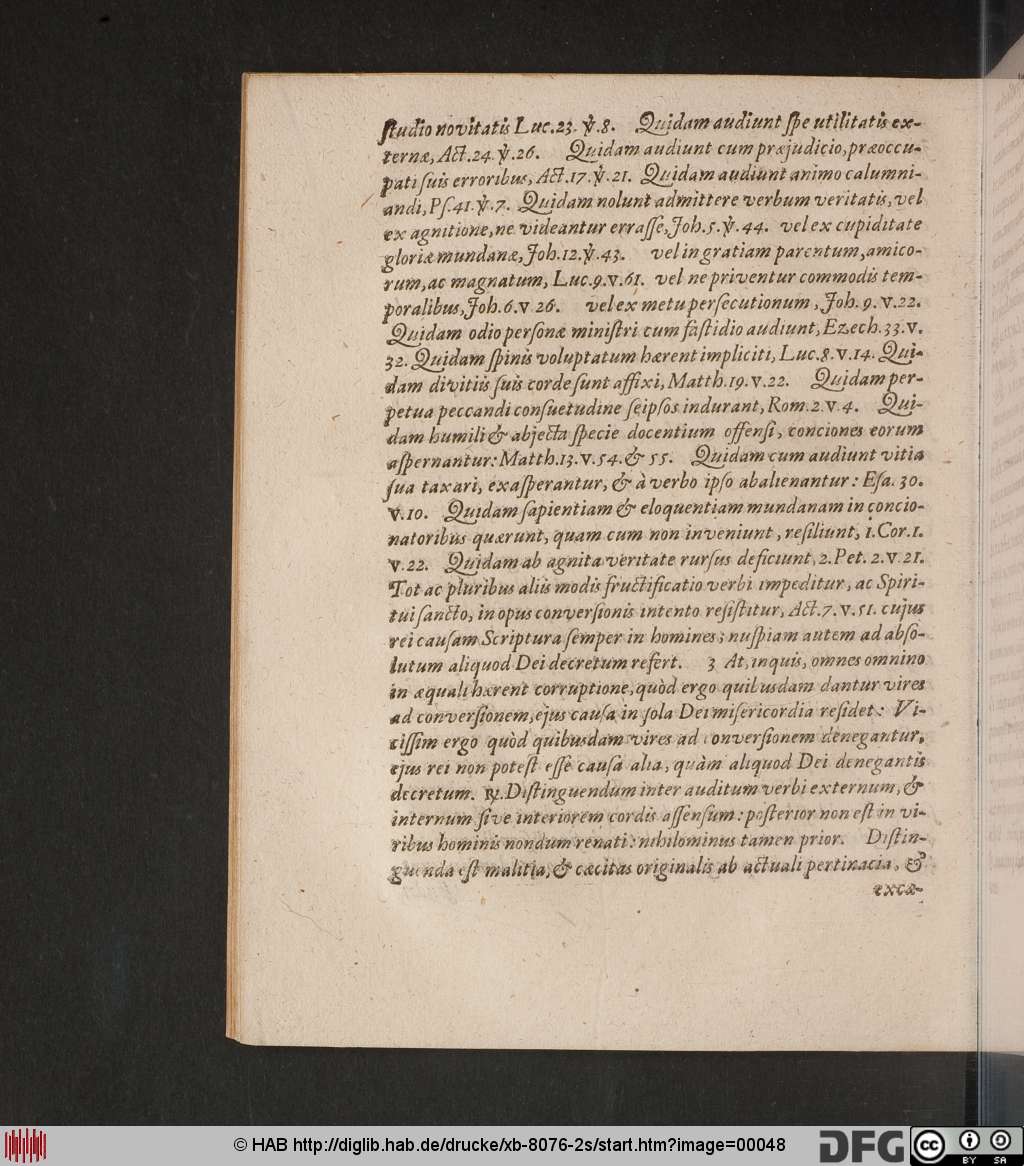 ſtudio novitatis Luc.23. ℣.8. Quidam audiunt ſpe utilitatis ex-
ternæ, Act.24.℣.26. Quidam audiunt cum præjudicio, præoccu-
pati ſuis erroribus, Act.17.℣.21. Quidam audiunt animo calumni-
andi, Pſ.41.℣.7. Quidam nolunt admittere verbum veritatis, vel
ex agnitione, ne videantur erraſſe, Joh.5.℣.44. vel ex cupiditate
gloriæ mundanæ, Joh.12.℣.43. vel in gratiam parentum, amico-
rum, ac magnatum, Luc.9.v.61. vel ne priventur commodis tem-
poralibus, Joh.6.v 26. vel ex metu perſecutionum, Joh.9.v.22.
Quidam odio perſonæ miniſtri cum faſtidio audiunt, Ezech.33.v.
32. Quidam ſpinis voluptatum hærent impliciti, Luc.8.v.14. Qui-
dam divitiis ſuis corde ſunt affixi, Matth.19.v.22. Quidam per-
petua peccandi conſuetudine ſeipſos indurant, Rom.2.v.4. Qui-
dam humili & abjecta ſpecie docentium offenſi, conciones eorum
aſpernantur: Matth.13.v.54.& 55. Quidam cum audiunt vitia
ſua taxari, exaſperantur, & à verbo ipſo abalienantur: Eſa. 30.
v.10. Quidam ſapientiam & eloquentiam mundanam in concio-
natoribus quærunt, quam cum non inveniunt, reſiliunt, 1.Cor.1.
v.22. Quidam ab agnita veritate rurſus deficiunt, 2.Pet.2.v.21.
Tot ac pluribus aliis modis fructificatio verbi impeditur, ac Spiri-
tui ſancto, in opus converſionis intento reſiſtitur, Act.7.v.51. cujus
rei cauſam Scriptura ſemper in homines; nuſpiam autem ad abſo-
lutum aliquod Dei decretum refert. 3 At, inquis, omnes omnino
in æquali hærent corruptione, quòd ergo quibusdam dantur vires
ad converſionem, ejus cauſa in ſola Dei miſericordia reſidet: Vi-
ciſſim ergo quòd quibusdam vires ad converſionem denegantur,
ejus rei non poteſt eſſe cauſa alia, quàm aliquod Dei denegantis
decretum. ℞. Diſtinguendum inter auditum verbi externum, &
internum ſive interiorem cordis aſſenſum: poſterior non eſt in vi-
ribus hominis nondum renati: nihilominus tamen prior. Diſtin-
guenda eſt malitia, & cæcitas originalis ab actuali pertinacia, &
excæ-
© HAB http://diglib.hab.de/drucke/xb-8076-2s/start.htm?image=00048
DFG
cc
BY SA